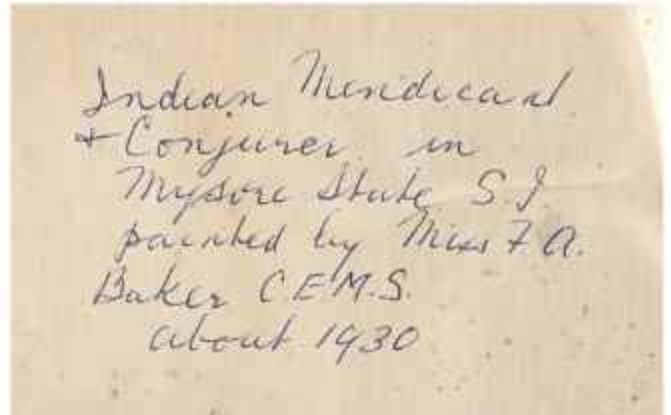 Indian Mendicant
+ Conjurer in
Mysore State S I
painted by Miss F A.
Baker C.E.M.S.
about 1930